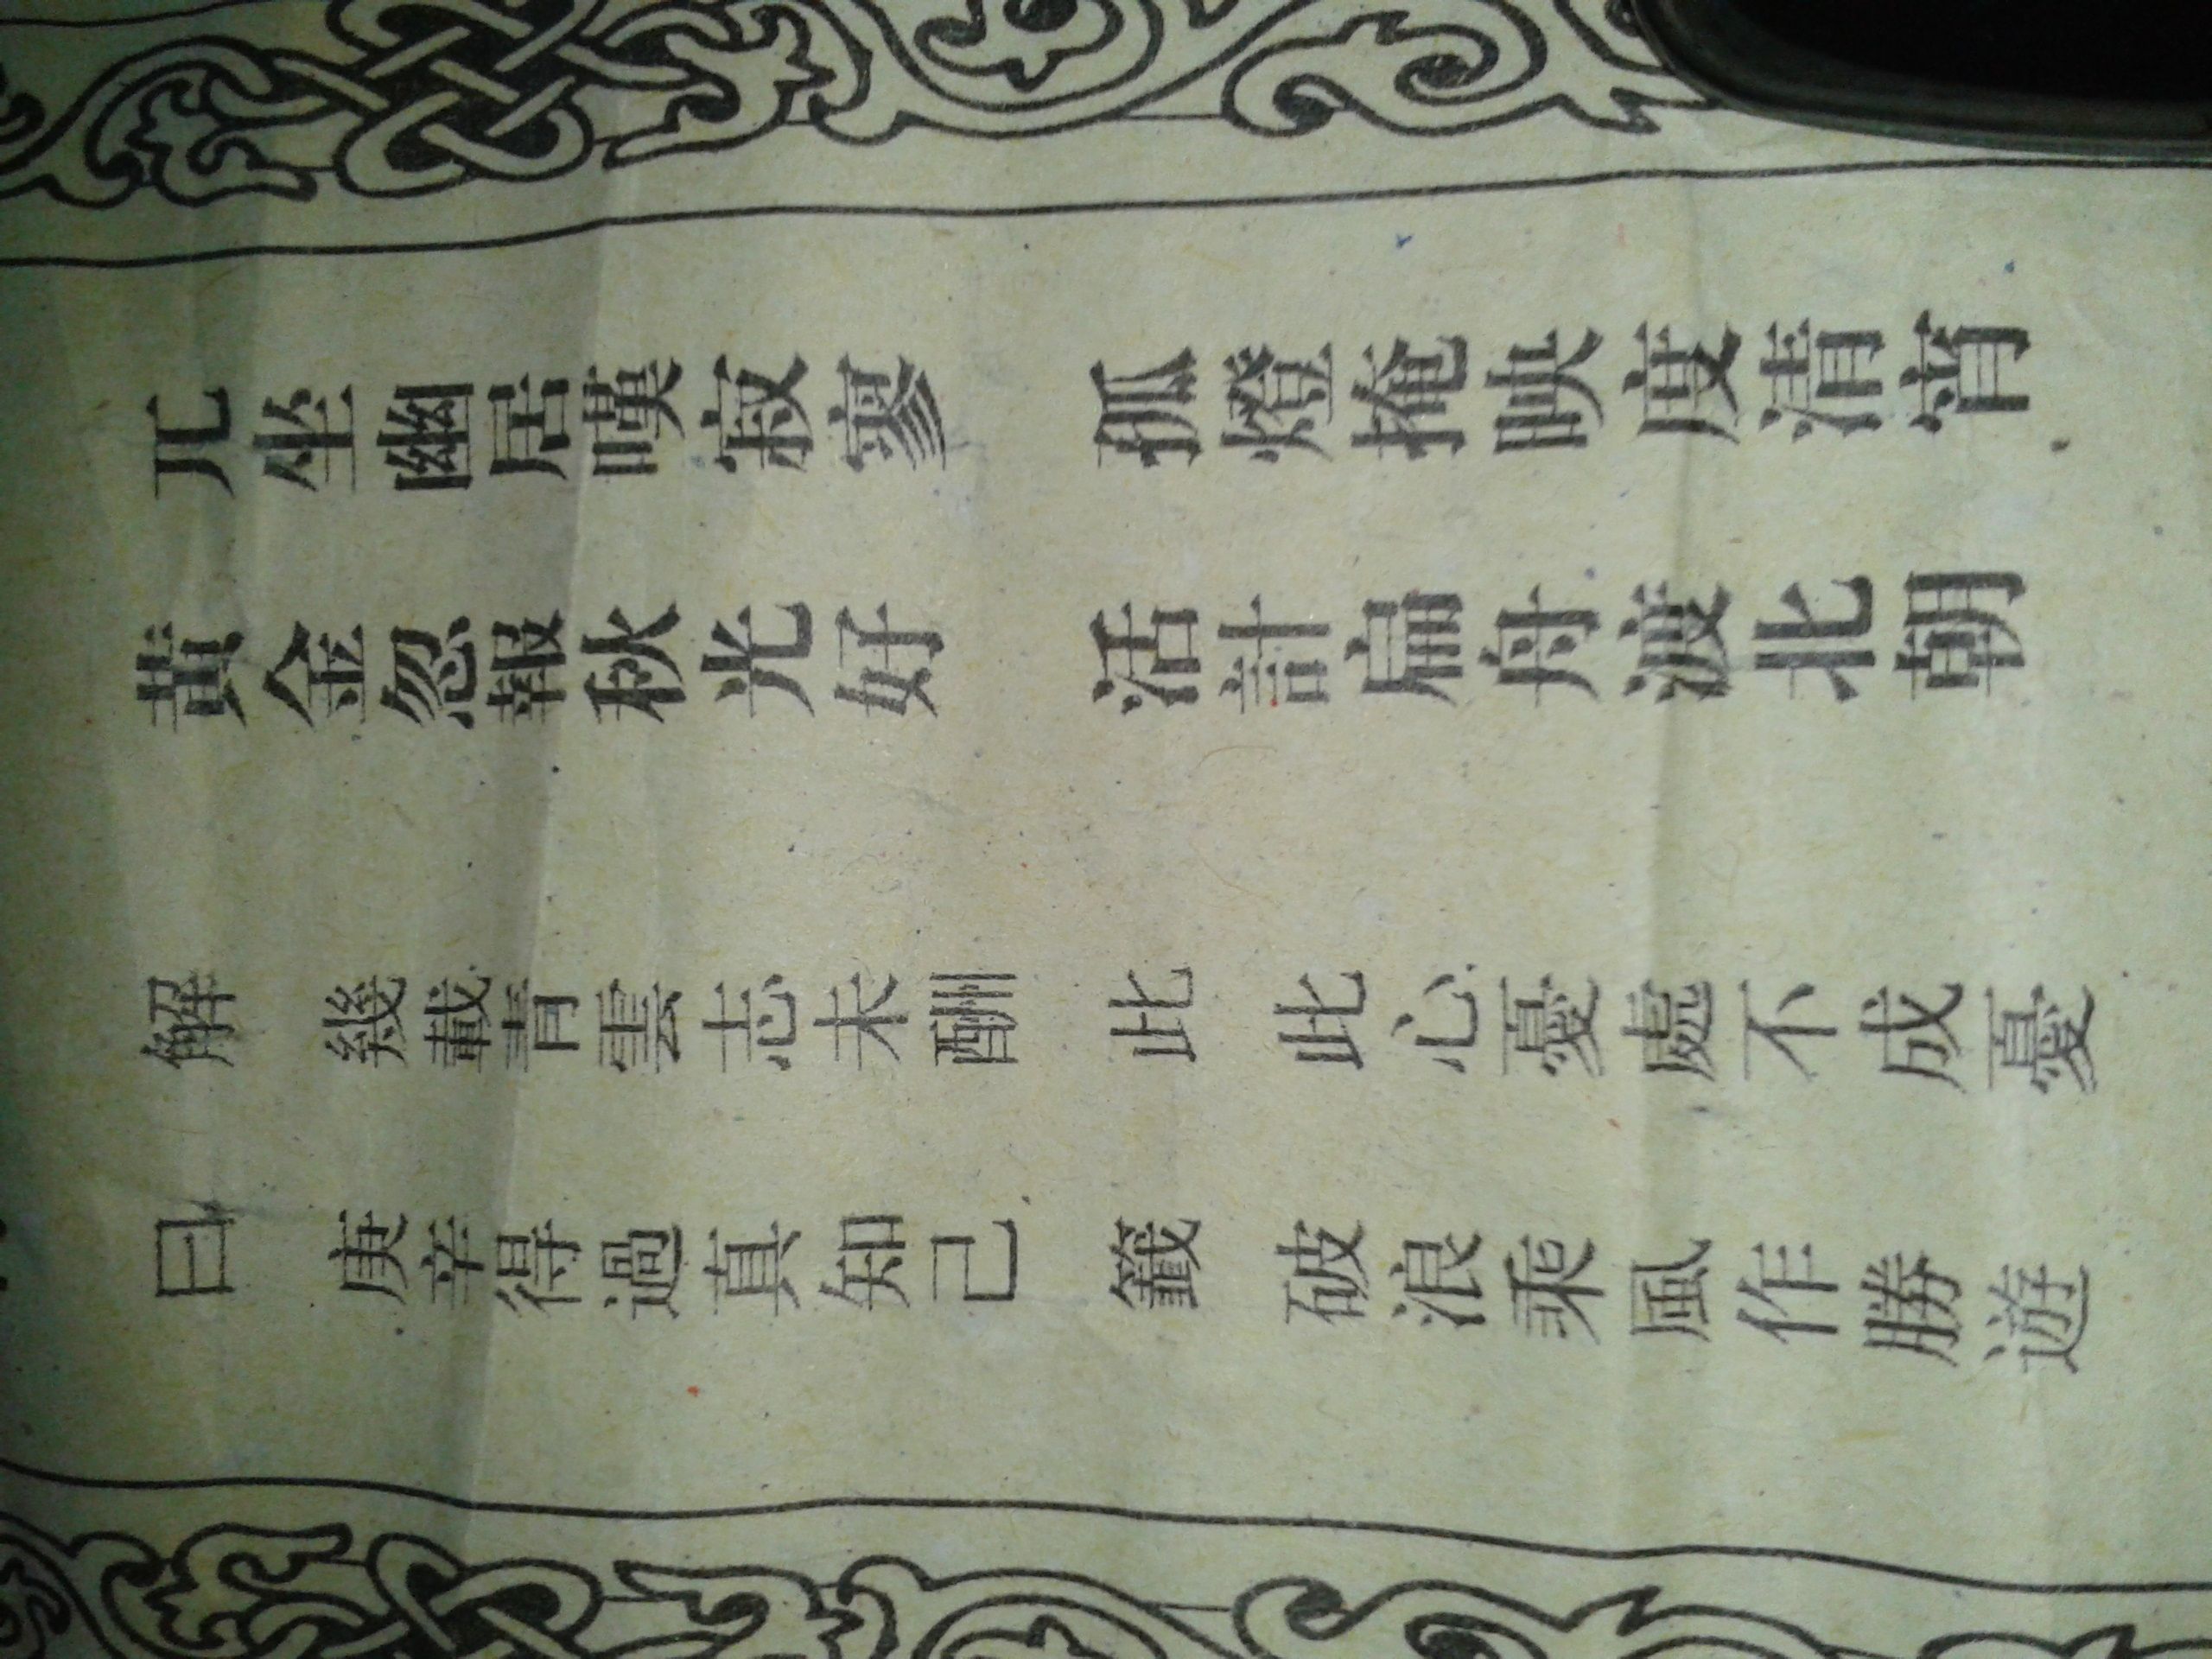 兀坐幽居嘆寂寥 孤燈掩映度清宵
黃金忽報秋光好 活計扁舟渡北朝
解 幾載青雲志未酬 此 此心憂處不成憂
曰 庚辛得過真知己 籤 破浪乘風作勝遊